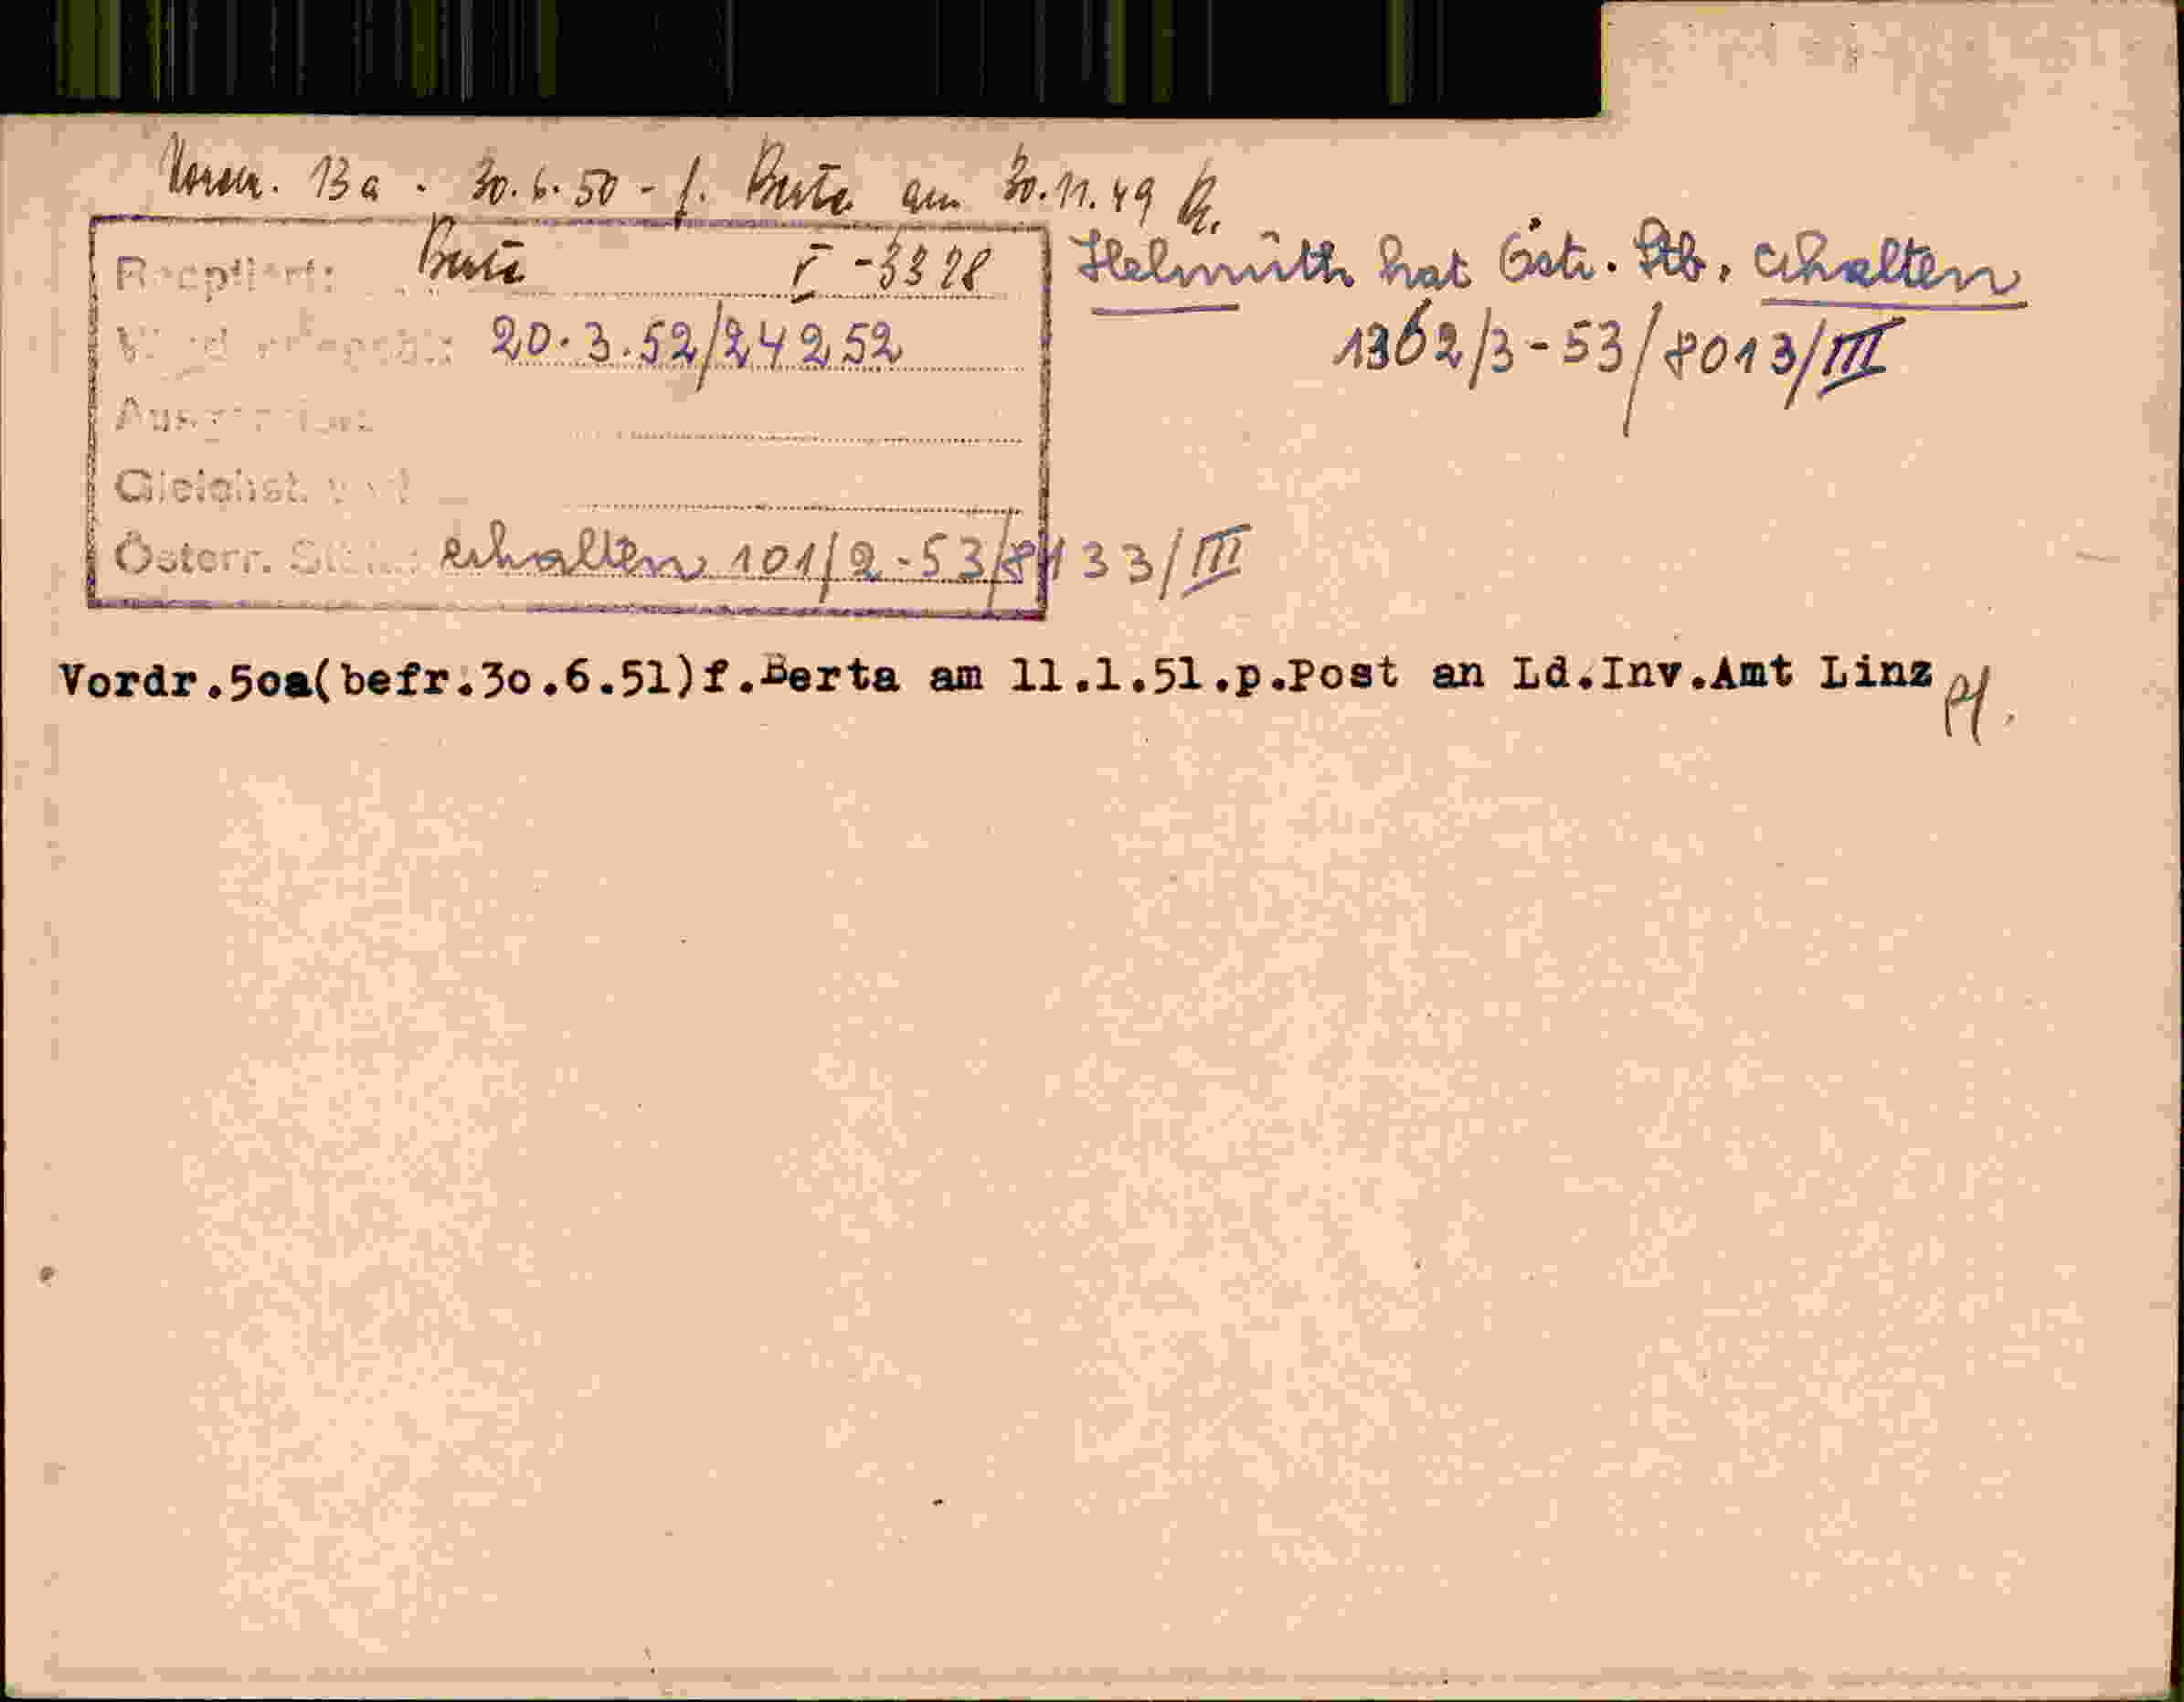 13a - 30.6.50 - f. Berta am 30.11.49
Berta I-3328
Helmuth hat Östr. Stb. erhalten
20.3.52/24252
1362/3-53/8013/III
Gleichst.
Österr. erhalten 101/2-53/8133/III
Vordr.5oa(befr.3o.6.51)f.Berta am 11.1.51.p.Post an Ld.Inv.Amt Linz